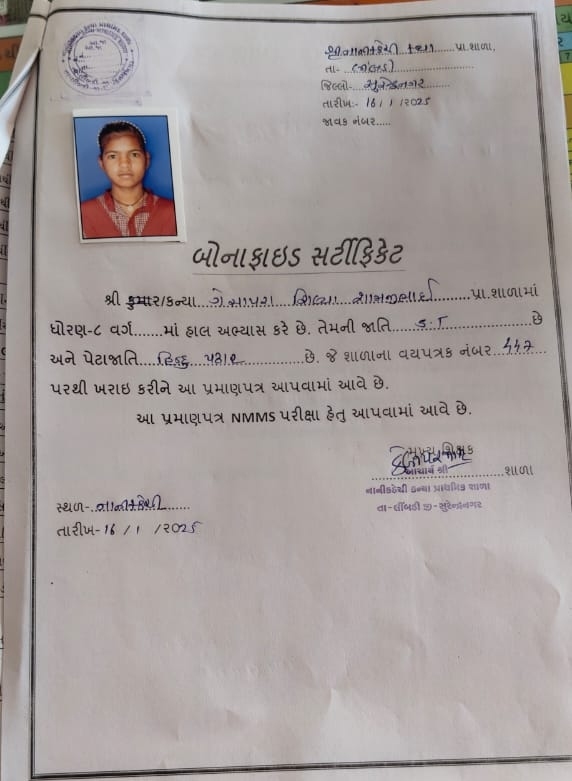 શ્રી નાનીકઠેચી કન્યા પ્રા.શાળા,
તા- લીંબડી
જિલ્લો- સુરેન્દ્રનગર
તારીખ:- 16/1/૨૦25
જાવક નંબર.....
બોનાફાઇડ સર્ટીફિકેટ
શ્રી કુમાર/કન્યા શિલ્પા શામજીભાઈ પ્રા.શાળામાં
ધોરણ-૮ વર્ગ......માં હાલ અભ્યાસ કરે છે. તેમની જાતિ S.T છે
અને પેટાજાતિ હિન્દુ પઢાર છે. જે શાળાના વયપત્રક નંબર 447
પરથી ખરાઇ કરીને આ પ્રમાણપત્ર આપવામાં આવે છે.
આ પ્રમાણપત્ર NMMS પરીક્ષા હેતુ આપવામાં આવે છે.
મુખ્ય શિક્ષક
આચાર્ય શ્રી શાળા
નાનીકઠેચી કન્યા પ્રાથમિક શાળા
તા-લીંબડી જી-સુરેન્દ્રનગર
સ્થળ- નાનીકઠેચી
તારીખ-16 / 1 /૨૦25